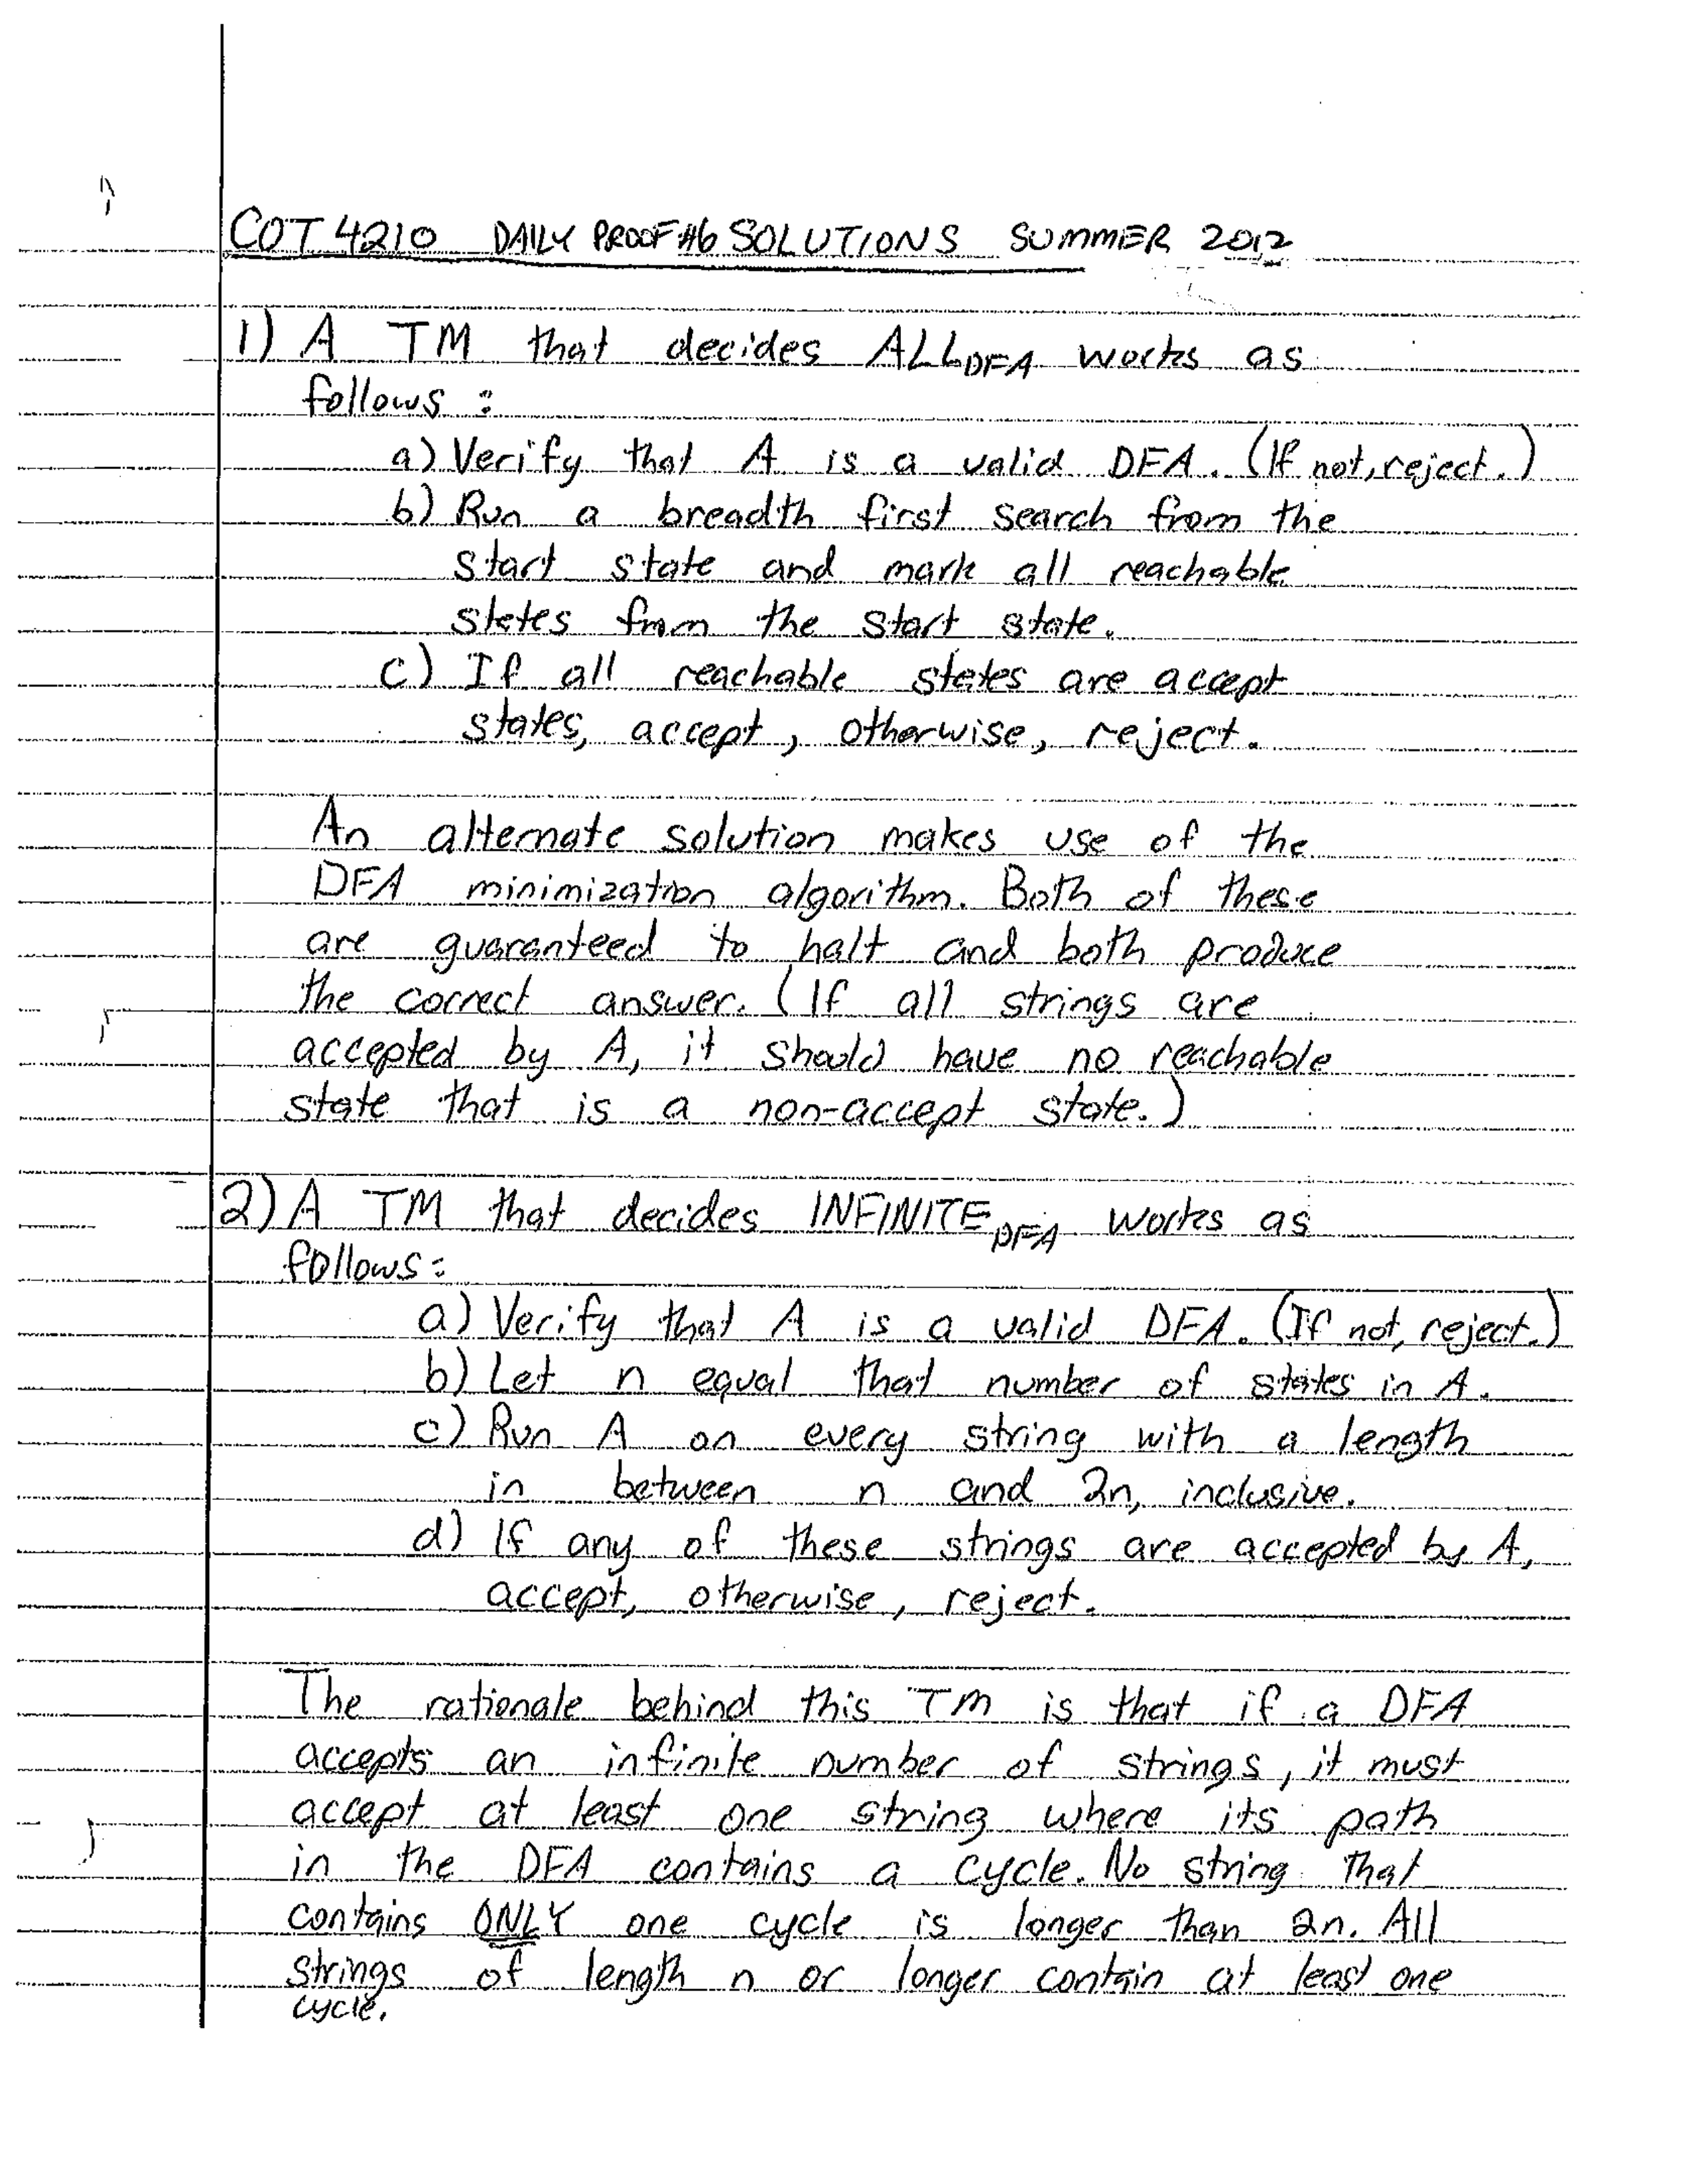 COT 4210 DAILY PROOF #6 SOLUTIONS SUMMER 2012
1) A TM that decides ALL_DFA works as
follows:
a) Verify that A is a valid DFA. (If not, reject.)
b) Run a breadth first search from the
start state and mark all reachable
states from the start state.
c) If all reachable states are accept
states, accept, otherwise, reject.
An alternate solution makes use of the
DFA minimization algorithm. Both of these
are guaranteed to halt and both produce
the correct answer. (If all strings are
accepted by A, it should have no reachable
state that is a non-accept state.)
2) A TM that decides INFINITE_DFA works as
follows:
a) Verify that A is a valid DFA. (If not, reject.)
b) Let n equal that number of states in A.
c) Run A on every string with a length
in between n and 2n, inclusive.
d) If any of these strings are accepted by A,
accept, otherwise, reject.
The rationale behind this TM is that if a DFA
accepts an infinite number of strings, it must
accept at least one string where its path
in the DFA contains a cycle. No string that
contains ONLY one cycle is longer than 2n. All
strings of length n or longer contain at least one
cycle.